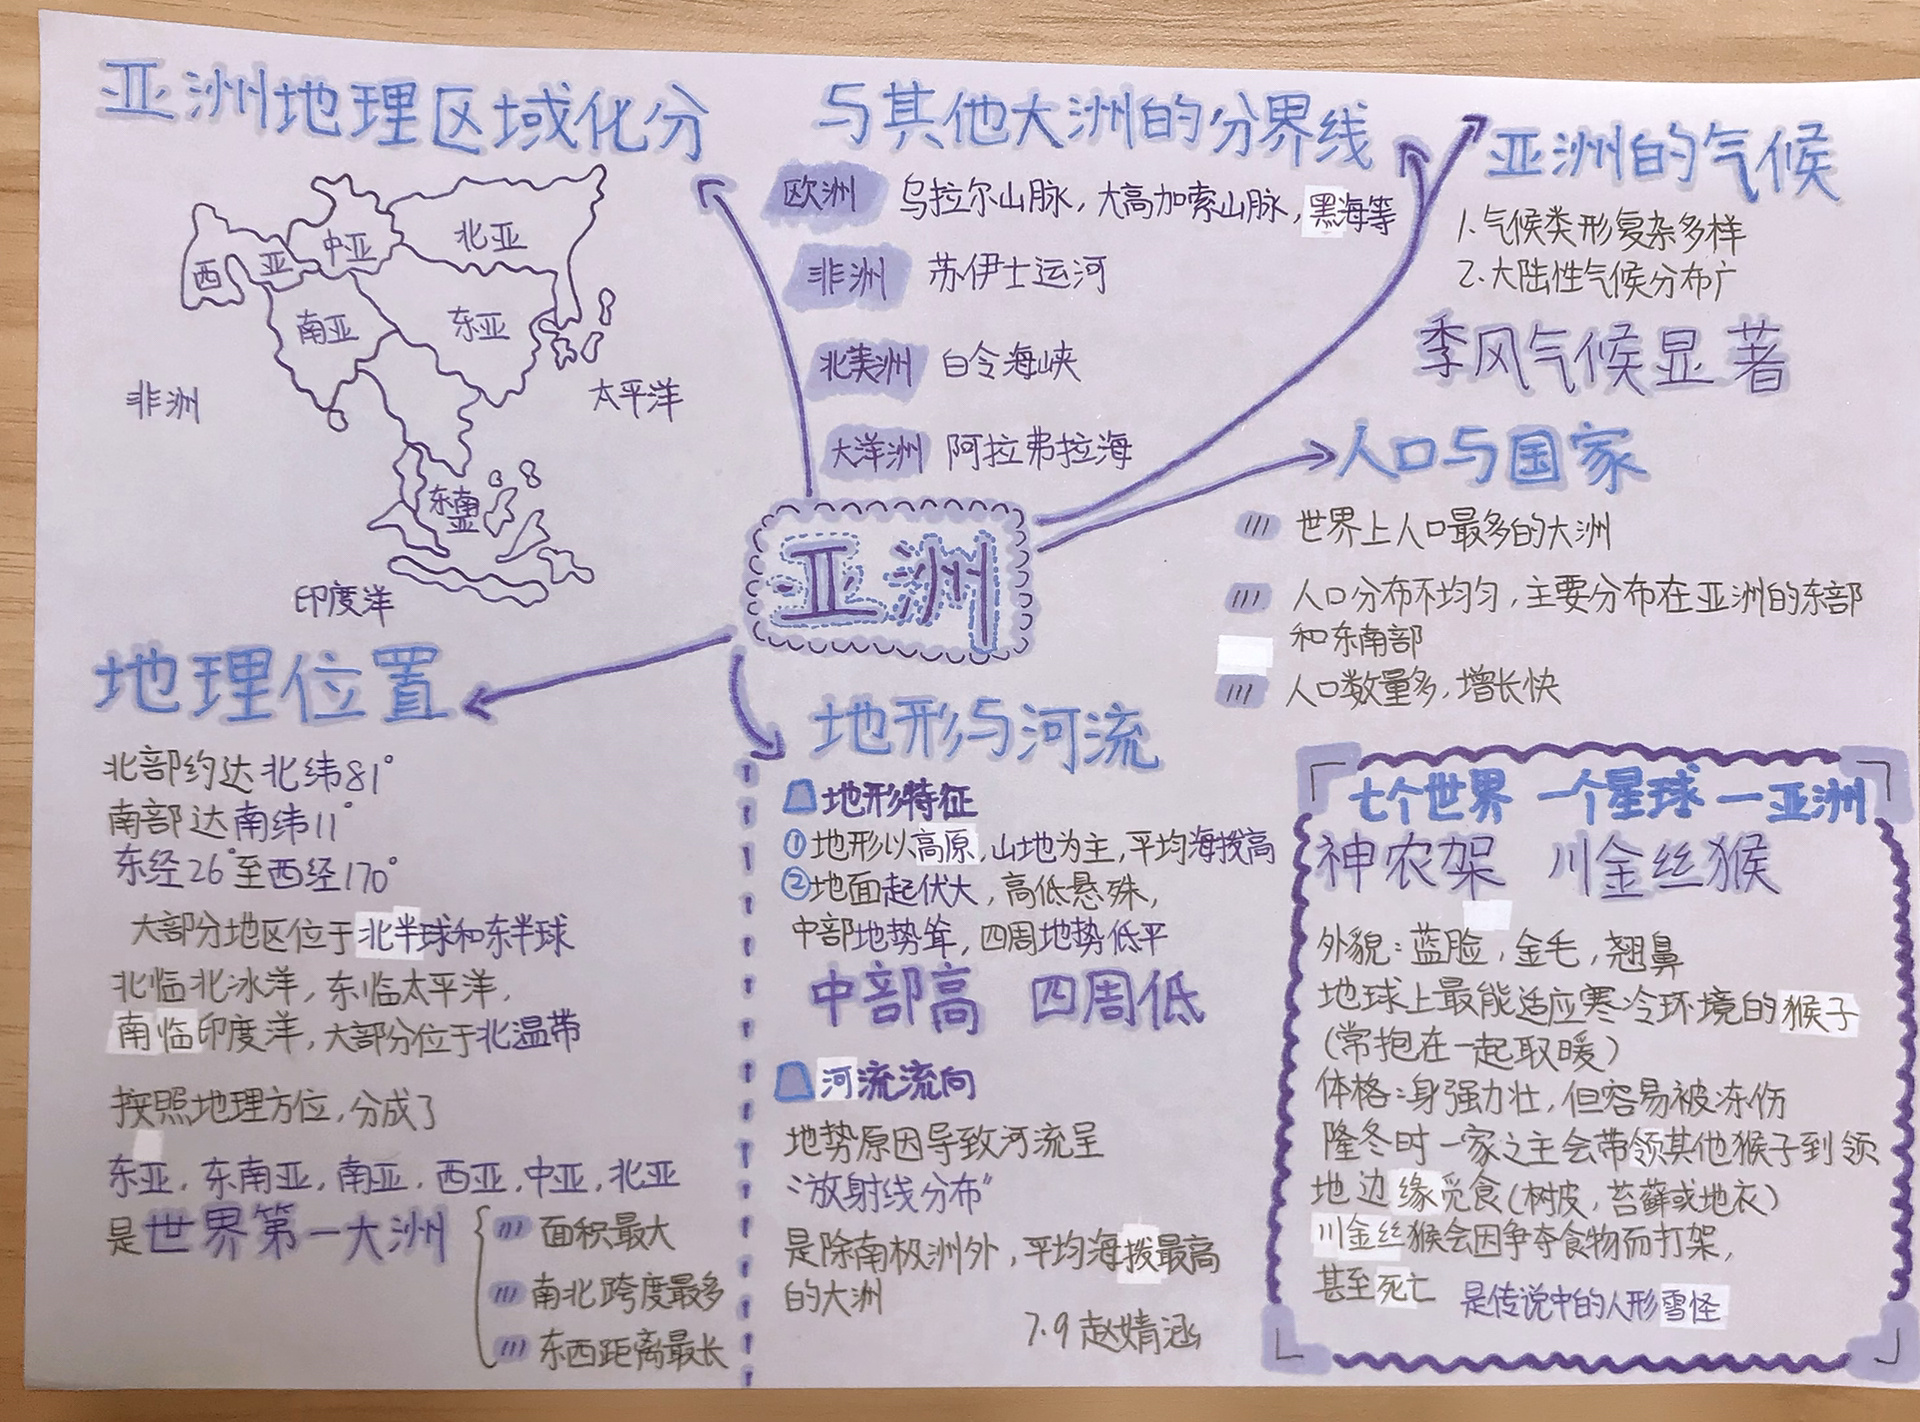 亚洲地理区域化分
中亚
北亚
西
亚
南亚
东亚
非洲
太平洋
东南亚
印度洋
与其他大洲的分界线
欧洲 乌拉尔山脉，大高加索山脉，黑海等
非洲 苏伊士运河
北美洲 白令海峡
大洋洲 阿拉弗拉海
亚洲的气候
1.气候类形复杂多样
2.大陆性气候分布广
季风气候显著
人口与国家
世界上人口最多的大洲
人口分布不均匀，主要分布在亚洲的东部
和东南部
人口数量多，增长快
亚洲
地理位置
北部约达北纬81°
南部达南纬11°
东经26°至西经170°
大部分地区位于北半球和东半球
北临北冰洋，东临太平洋，
南临印度洋，大部分位于北温带
按照地理方位，分成了
东亚，东南亚，南亚，西亚，中亚，北亚
是世界第一大洲
面积最大
南北跨度最多
东西距离最长
地形与河流
地形特征
①地形以高原，山地为主，平均海拨高
②地面起伏大，高低悬殊，
中部地势耸，四周地势低平
中部高 四周低
河流流向
地势原因导致河流呈
“放射线分布”
是除南极洲外，平均海拨最高
的大洲
7.9 赵婧涵
七个世界 一个星球 — 亚洲
神农架 川金丝猴
外貌：蓝脸，金毛，翘鼻
地球上最能适应寒冷环境的猴子
（常抱在一起取暖）
体格：身强力壮，但容易被冻伤
隆冬时一家之主会带领其他猴子到领
地边缘觅食（树皮，苔藓或地衣）
川金丝猴会因争夺食物而打架，
甚至死亡 是传说中的人形雪怪